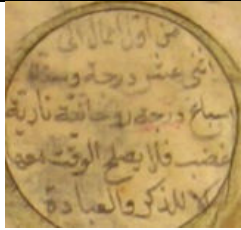 من اول الحمل الى
اثنى عشر درجة وستة
اسباع درجة روحانية نارية
غضب فلا يصلح الوقت معها
الا للذكر والعبادة